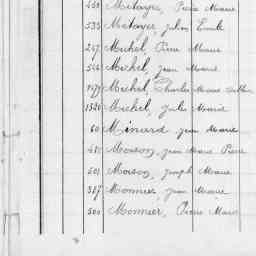 Metayer, Pierre Marie
535 Metayer Julien Emile
247 Michel, Pierre Marie
Michel, Jean Marie
Michel, Charles Marie
1320 Michel, Jules Marie
60 Minard Jean Marie
Moison, Jean Marie Pierre
501 Moison, Joseph Marie
387 Monnier, Jean Marie
500 Monnier, Pierre Marie